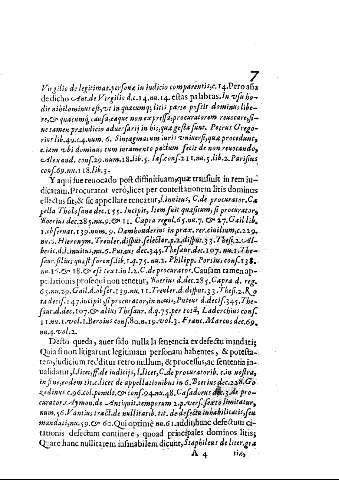 7
Virgilio de legitimat. personæ in iudicio comparentis, c. 14. Pero aña
de dicho Aut. de Virgilio d.c. 14. nu. 14. estas palabras. In usu ho-
die nihilominus est, ut in quacumq; litis parte possit dominus libe-
re, & quacumq; causa, eaque non expressa, procuratorem reuocare, si-
ne tamen præiudicio aduersarij in his, quæ gesta sunt. Petrus Grego-
rius lib. 49. c. 4. num. 6. Sintagmatum iuris uniuersi, quæ procedunt,
etiam ubi dominus cum iuramento pactum fecit de non reuocando,
Alexand. cons. 29. num. 18. lib. 5. Ias. cons. 211. nu. 5. lib. 2. Parisius
cons. 69. nu. 118. lib. 3.
Y aqui fue reuocado post diffinitiuam, quæ transiuit in rem iu-
dicatam. Procurator verò, licet per contestationem litis dominus
effectus sit, & sic appellare teneatur, l. inuitus, C. de procurator. Ca
pella Tholosane dec. 155. incipit, Item fuit quæsitum, si procurator,
Boerius dec. 285. nu. 9. & 11. Capra regul. 65. nu. 7. & 27. Gail lib.
1. obseruat. 139. num. 9. Damhouderius in prax. rer. ciuilium, c. 229.
nu. 2. Hieronym. Treuler. disput. select. to. p. 2. disput. 33. Thes. 2. Al-
bric. d. l. inuitus, nu. 5. Puteus dec. 345. Thesaur. dec. 107. nu. 1. The-
saur. filius quæst. forens. lib. 4. q. 75. nu. 2. Philipp. Portius cons. 138.
nu. 16. & 18. & est text. in l. 2. C. de procurator. Causam tamen ap-
pellationis prosequi non tenetur, Boerius d. dec. 285. Capra d. reg.
65. nu. 29. Gail. d. obser. 139. nu. 11. Treuler. d. disput. 33. Thes. 2. Ro
ta decis. 147. incipit si procurator, in nouis, Puteus d. decis. 345, The-
saur. d. dec. 107. & alius Thesaur. d. q. 75. per totã, Laderchius cons.
11. nu. 1. vol. 1. Beroius cons. 80. nu. 19. vol. 3. Franc. Marcus dec. 69.
nu. 4. vol. 2.
Desto queda, auer sido nulla la sentencia ex defectu mandati;
Quia si non litigarunt legitimam personam habentes, & potesta-
tem, iudicium redditur retro nullum, & processus, ac sententia in-
ualidatur, l. licet, ff. de iudicijs, l. licet, C. de procuratorib. c. in nostra,
in fin. eodem tit. c. licet de appellationibus in 6. Boerius dec. 228. Go
zadinus c. 96. col. penult. & cons. 94. nu. 48, Casadorus dec. 3. de pro-
curator. Aymon. de Antiquit. temporum 2. p. vers. sexto limitatur,
num. 56. Vantius tract. de nullitatib. tit. de defectu inhabilitatis, seu
mandati, nu. 59. & 60. Qui optimè nu. 61. addit, hunc defectum ci-
tationis defectum continere, quoad principales dominos litis;
Quare hanc nullitatem insanabilem dicunt, Staphileus de liter. gra
A 4 tiæ,